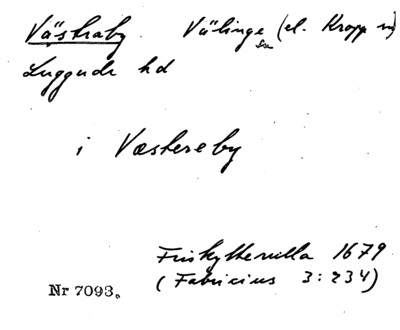 Västraby. Välinge sn (el. Kropp sn)
Luggude hd
i Væstereby
Friskyttervilla 1679
(Fabricius 3:234)
Nr 7093.